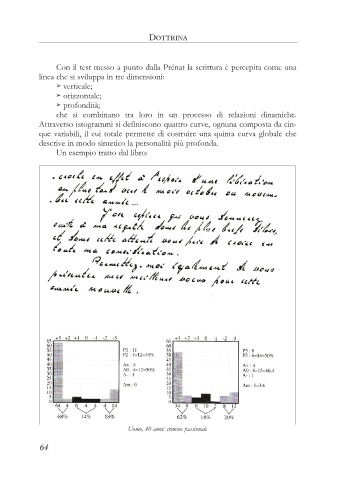 DOTTRINA
Con il test messo a punto dalla Prénat la scrittura è percepita come una
linea che si sviluppa in tre dimensioni:
➢ verticale;
➢ orizzontale;
➢ profondità;
che si combinano tra loro in un processo di relazioni dinamiche.
Attraverso istogrammi si definiscono quattro curve, ognuna composta da cin-
que variabili, il cui totale permette di costruire una quinta curva globale che
descrive in modo sintetico la personalità più profonda.
Un esempio tratto dal libro:
. croche en effet à l'espoir d'une libération
au plus tard vers le mois octobre ou novem-
bre cette année...
J'ose espérer que vous donnerez
suite à ma requête dans les plus brefs délais,
et dans cette attente vous prie de croire en
toute ma considération.
Permettez-moi également de vous
présenter mes meilleurs voeux pour cette
année nouvelle.
+3 +2 +1 0 -1 -2 -3
+3 +2 +1 0 -1 -2 -3
65
60
55
50
45
40
35
30
25
20
15
10
5
0
65
60
55
50
45
40
35
30
25
20
15
10
5
0
P3 : 11
A+ : 5
A- : 1
Am : 0
A- : 1
68% 14% 18%
62% 18% 20%
Uomo, 40 anni: crimine passionale
64